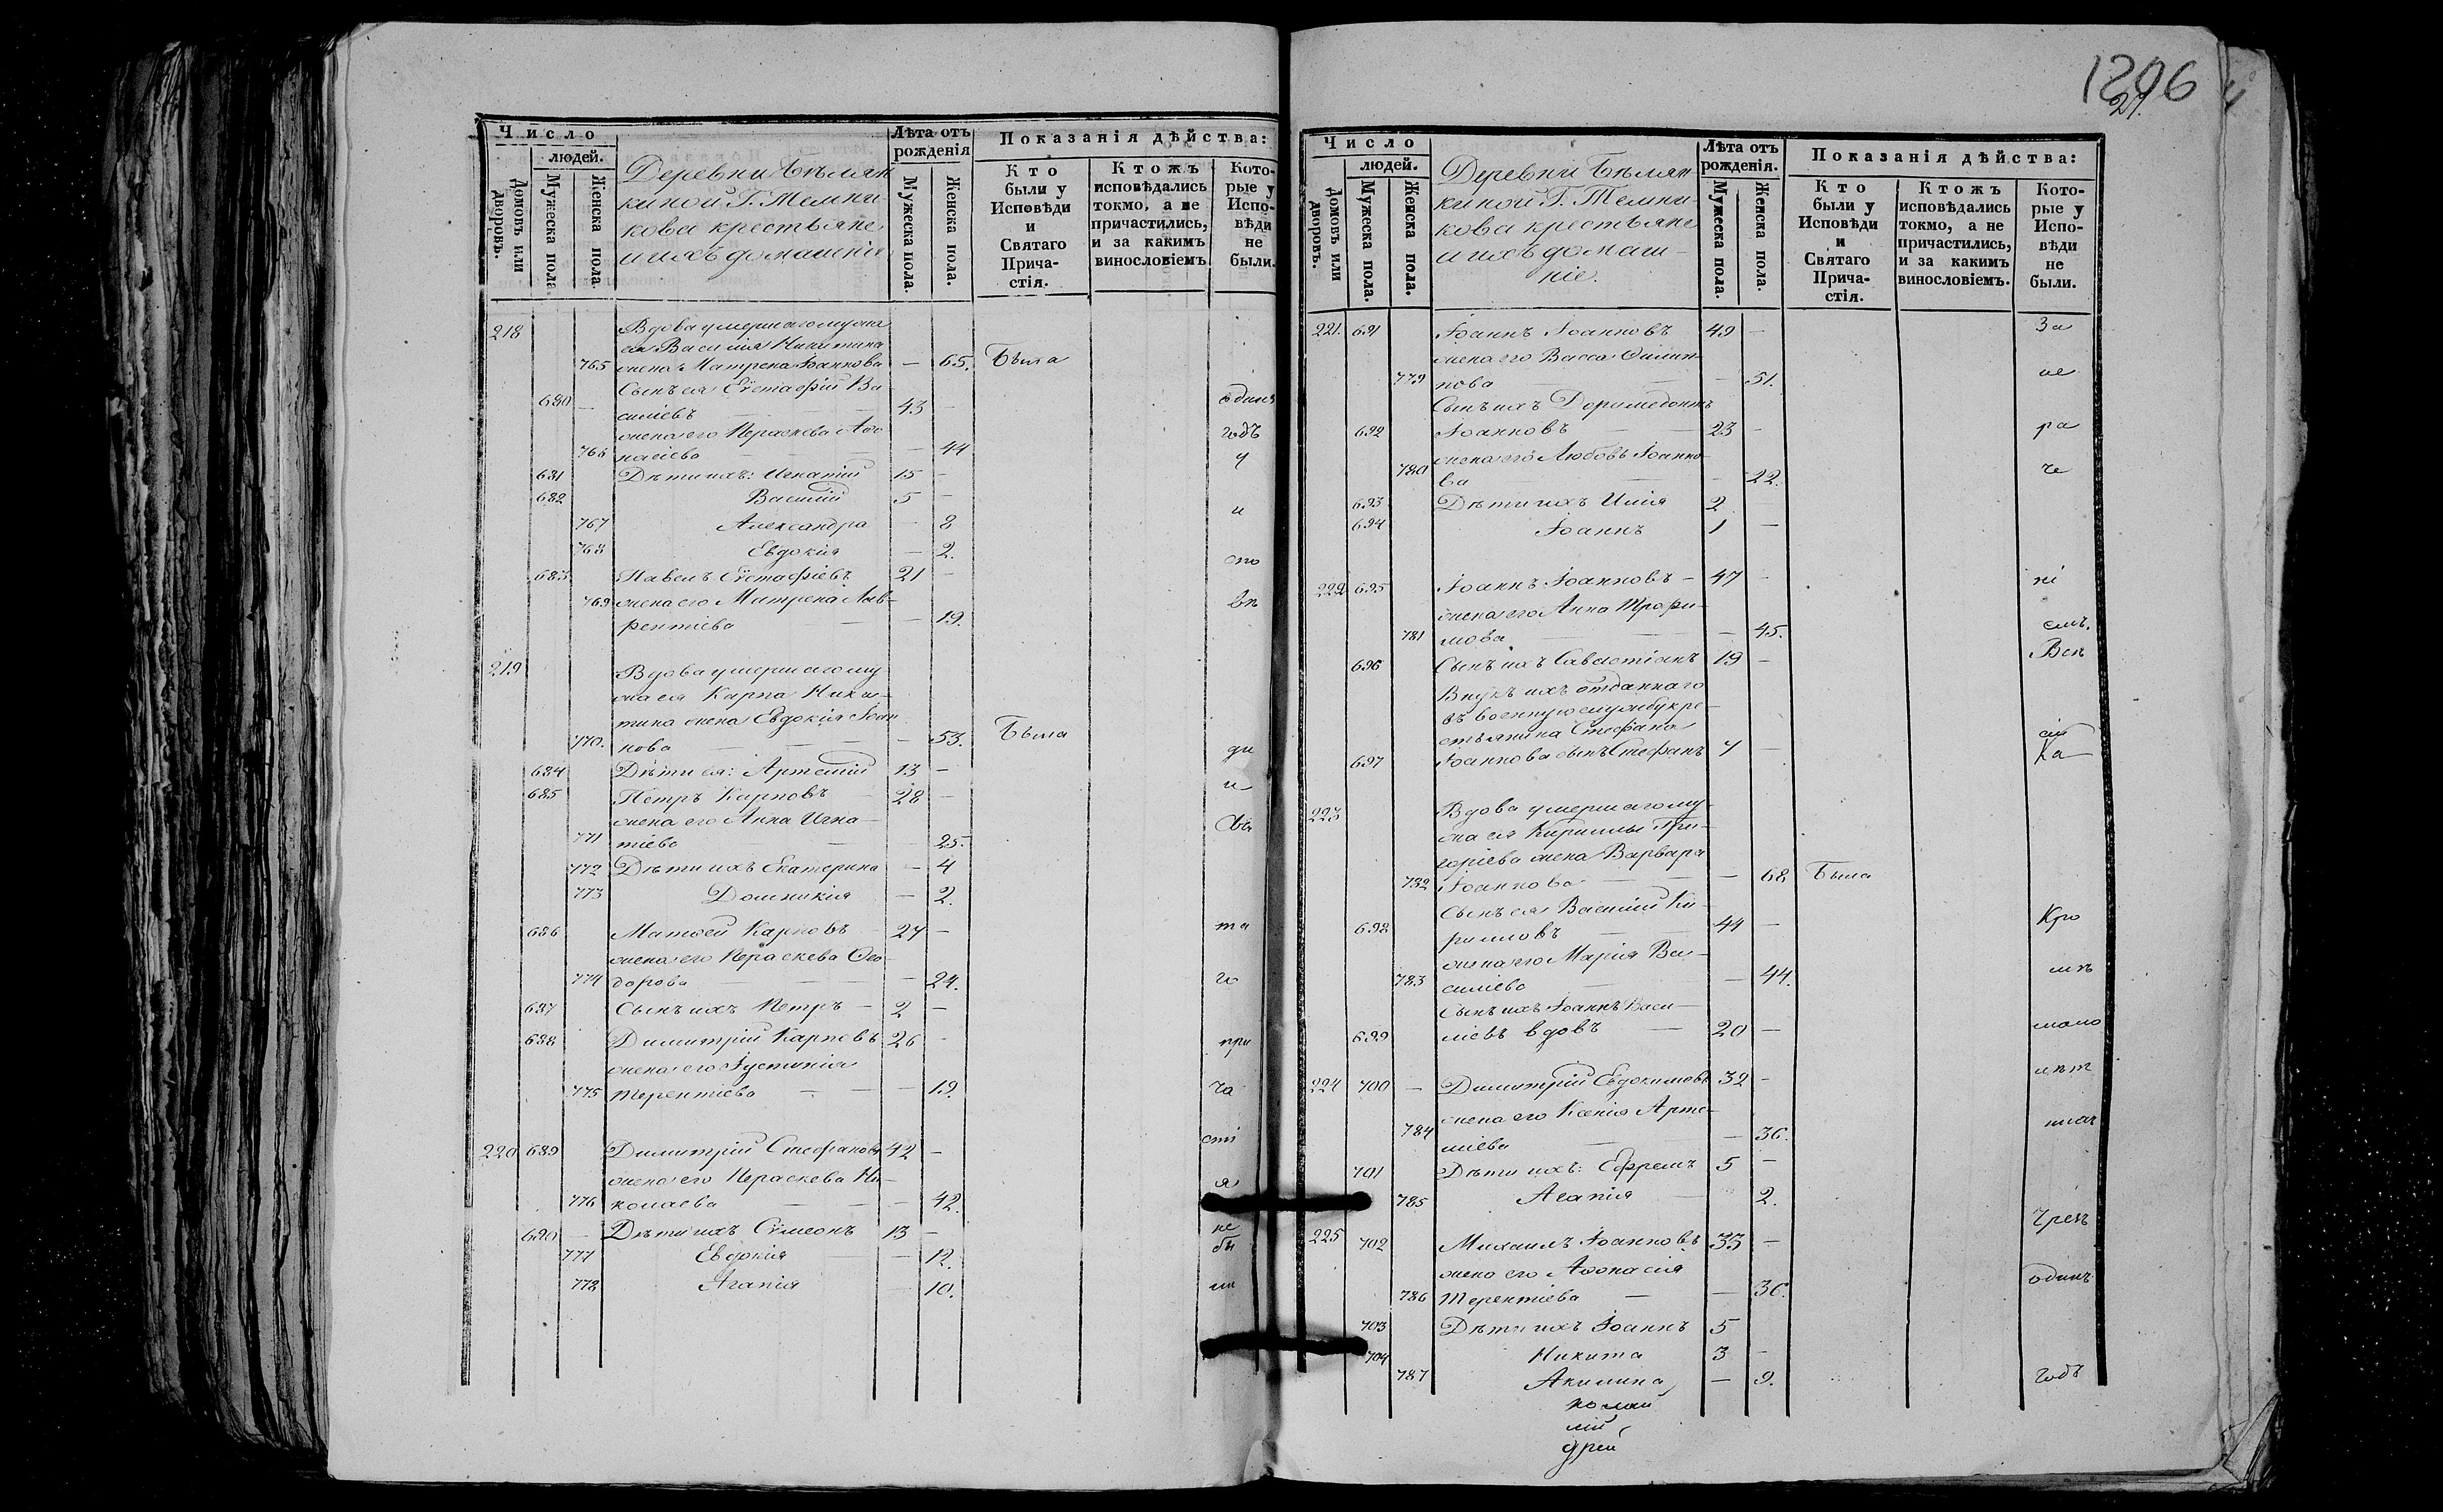 Число
людей.
Домовъ или дворовъ.
Мужеска пола.
Женска пола.
Деревни Бѣлян
киной Г. Темни-
кова крестьяне
и ихъ домашніе
Лѣта отъ
рожденія
Мужеска пола.
Женска пола.
Показанія дѣйства:
Кто
были у
Исповѣди
и
Святаго
Прича-
стія.
Ктожъ
исповѣдались
токмо, а не
причастились,
и за какимъ
винословіемъ
Кото-
рые у
Испо-
вѣди
не
были.
218 Вдова умершаго мужа
ея Василія Никитина
765 жена Матрена Іоаннова — 65. Была
Сынъ ея Еѵстафій Ва-
680 — силіевъ 43 — одинъ
жена его Параскева Аѳа
766 насіева — 44 годъ
у
681 Дѣти ихъ: Игнатій 15 —
682 Василій 5 —
767 Александра — 8 и
768 Евдокія — 2.
спо
683 Павелъ Еѵстафіевъ 21 —
769 жена его Матрена Лав- вѣ
рентіева — 19.
219 Вдова умершаго му
жа ея Карпа Ники-
тина жена Евдокія Іоан
770. нова — 53. Была
ди
684 Дѣти ея: Артемій 13 —
685 Петръ Карповъ 28 — и
жена его Анна Игна- Свя
771 тіева — 25.
772 Дѣти ихъ Екатерина — 4
773 Домникія — 2.
686 Матѳей Карповъ 24 — та
жена его Параскева Ѳео-
774 дорова — 24. го
687 Сынъ ихъ Петръ — 2 —
688 Димитрій Карповъ 26 — при
жена его Іустинія
775 Терентіева — 19. ча
220 689 Димитрій Стефановъ 42 — сті
жена его Параскева Ни-
776 колаева — 42. я
690 — Дѣти ихъ Сѵмеонъ 13 — не
777 Евдокія — 12. бы
778 Агапія 10. ли
1206
29.
Число
людей.
Домовъ или дворовъ.
Мужеска пола.
Женска пола.
Деревни Бѣлян
киной Г. Темни-
кова крестьяне
и ихъ домаш-
ніе.
Лѣта отъ
рожденія.
Мужеска пола.
Женска пола.
Показанія дѣйства:
Кто
были у
Исповѣди
и
Святаго
Прича-
стія.
Ктожъ
исповѣдались
токмо, а не
причастились,
и за какимъ
винословіемъ.
Кото-
рые у
Испо-
вѣди
не
были.
221. 691 Іоаннъ Іоанновъ 49 — За
жена его Васса Филип-
779 пова — 51. не
Сынъ ихъ Доримедонтъ
692 Іоанновъ 23 — ра
жена его Любовь Іоанно-
780 ва — 22. че
693 Дѣти ихъ Илія 2
694 Іоаннъ 1 —
222 695 Іоаннъ Іоанновъ — 47 — ні
жена его Анна Трофи-
781 мова — 45. емъ.
696 Сынъ ихъ Савастіанъ 19 — Вся
Внукъ ихъ отданнаго
въ военную службу кре-
стьянина Стефана
697 Іоаннова сынъ Стефанъ 4 — Ка
223 Вдова умершаго му-
жа ея Кириллы Гри-
горіева жена Варвара
782 Іоаннова — 68 Была
Сынъ ея Василій Ки-
698 рилловъ 44 — Кро
жена его Марія Ва-
783 силіева — 44. мѣ
Сынъ ихъ Іоаннъ Васи-
699 ліевъ вдовъ 20 — мало
224 700 — Димитрій Евдокимовъ 32 — лѣт
жена его Ксенія Арте-
784 міева — 36. нихъ
701 Дѣти ихъ: Ефремъ 5 —
785 Агапія 2.
225 702 Михаилъ Іоанновъ 33 — Чрезъ
жена его Аѳонасія
786 Терентіева — — 36. одинъ
703 Дѣти ихъ Іоаннъ 5
704 Никита 3 —
787 Акилина — 9. годъ
колай
лій
дрей